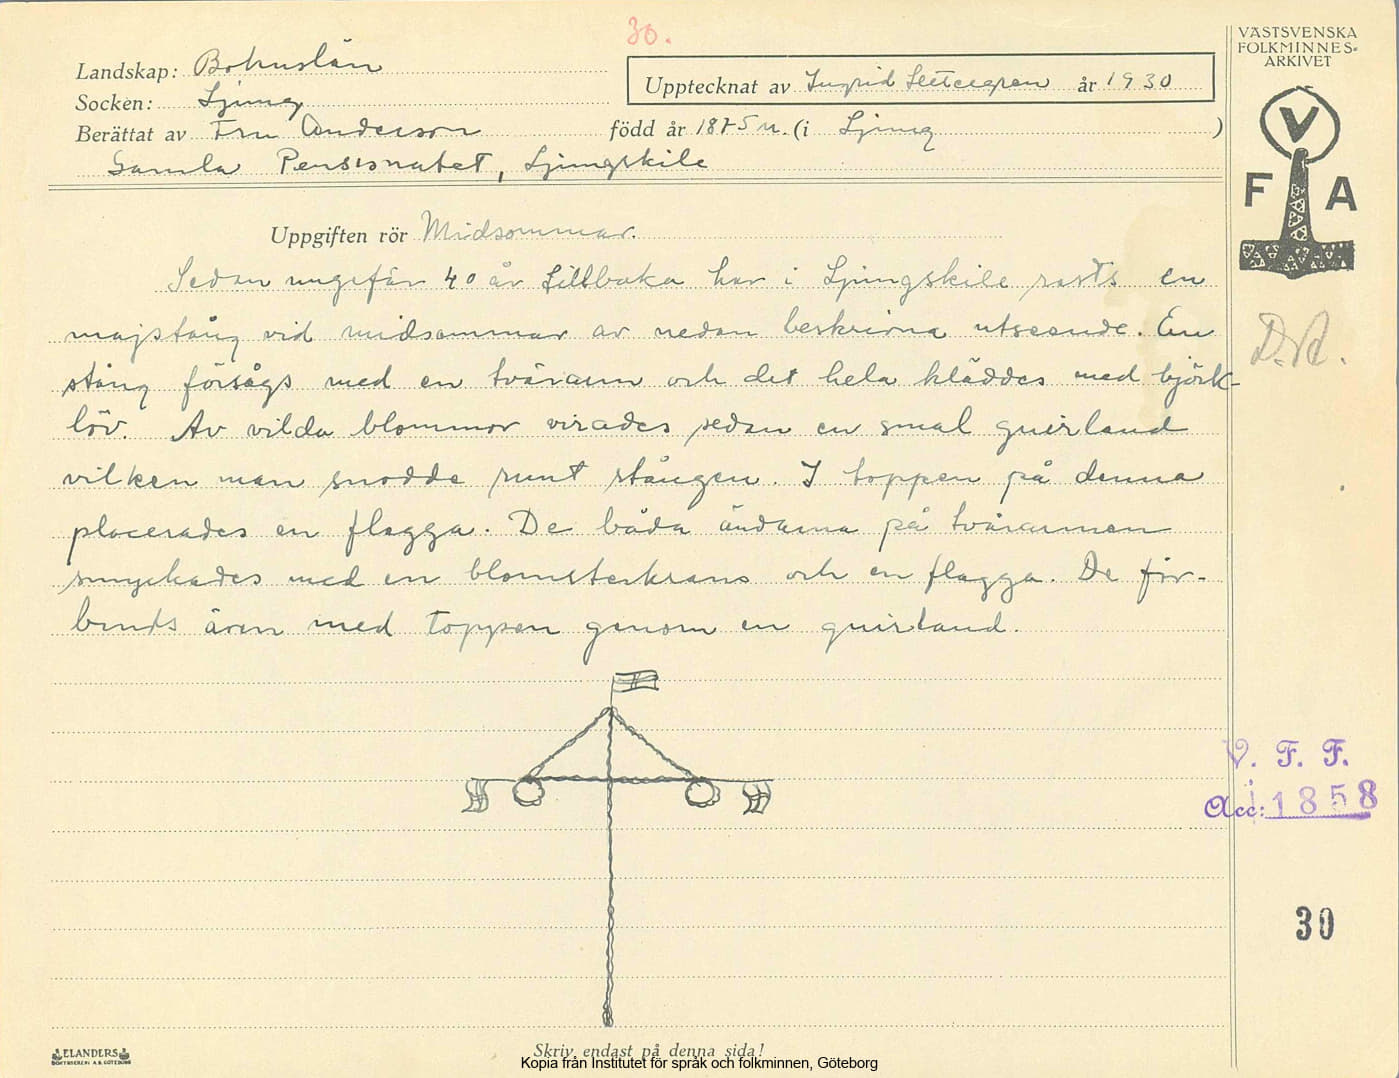 30.
VÄSTSVENSKA
FOLKMINNES-
ARKIVET
Landskap: Bohuslän
Upptecknat av Ingrid år 1930
Socken: Ljung
Berättat av Fru Anderson född år 1875 u. (i Ljung)
Gamla Pensionatet, Ljungskile
V
F A
Uppgiften rör Midsommar.
Sedan ungefär 40 år tillbaka har i Ljungskile rests en
majstång vid midsommar av nedan beskrivna utseende. En
stång försågs med en tvärarm och det hela kläddes med björk-
löv. Av vilda blommor virades sedan en smal guirland
vilken man snodde runt stången. I toppen på denna
placerades en flagga. De båda ändarna på tvärarmen
smyckades med en blomsterkrans och en flagga. De för-
bands även med toppen genom en guirland.
V. F. F.
Acc: 1858
30
ELANDERS
BOKTRYCKERI A.B. GÖTEBORG
Skriv endast på denna sida!
Kopia från Institutet för språk och folkminnen, Göteborg